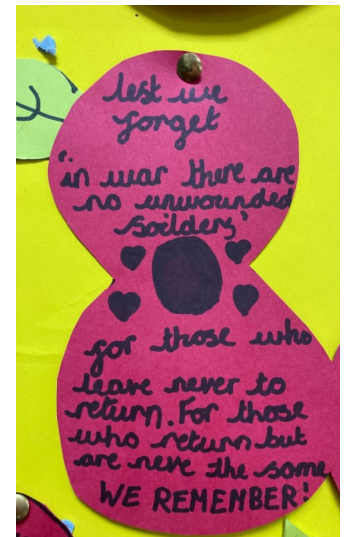 lest we
forget
"in war there are
no unwounded
soilders"
for those who
leave never to
return. For those
who return but
are neve the some
WE REMEMBER!